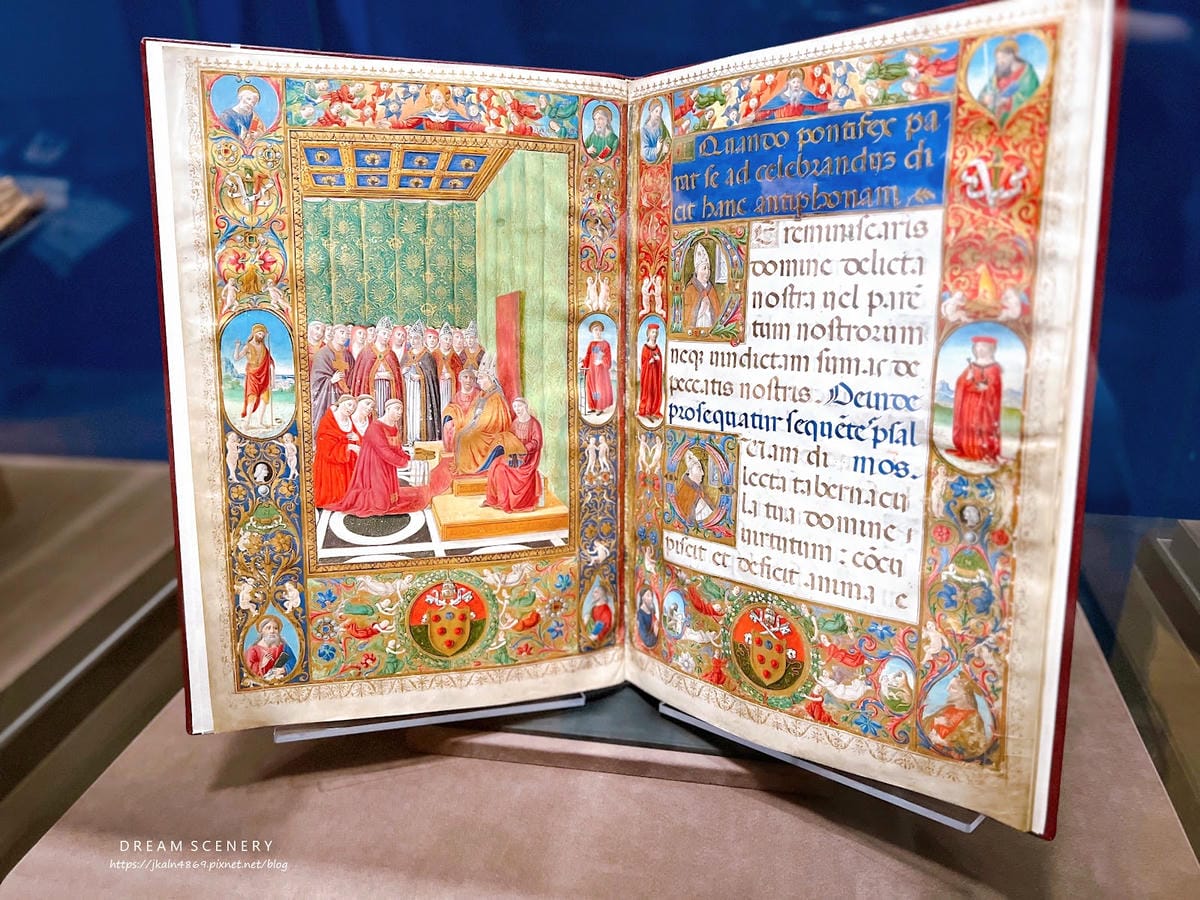 Quando pontifex pa
rat se ad celebrandus di
cit hanc antiphonam
E reminiscaris
domine delicta
nostra uel parẽ
tum nostrorum
neqꝫ uindictam sumas de
peccatis nostris. Deinde
prosequatur sequẽte psal
mos.
uam di
lecta tabernacu
la tua domine
uirtutum : cõcu
piscit et deficit anima
DREAM SCENERY
https://jkaln4869.pixnet.net/blog